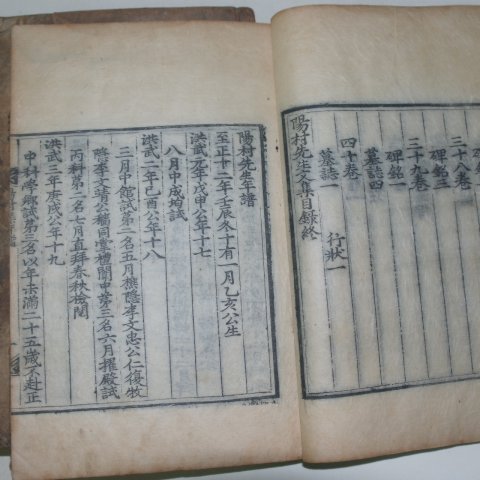 三十八卷
碑銘二
三十九卷
碑銘三
墓誌四
四十卷
墓誌一
行狀一
陽村先生文集目錄終
陽村先生年譜
至正十二年壬辰冬十有一月乙亥公生
洪武元年戊申公年十七
八月中成均試
洪武二年己酉公年十八
三月中館試第二名五月樵隱李文忠公仁復牧
隱李文貞公穡同掌禮闈中第三名六月擢殿試
丙科第二名七月直拜春秋檢閱
洪武三年庚戌公年十九
中科擧鄕試第三名以年未滿二十五歲不赴正